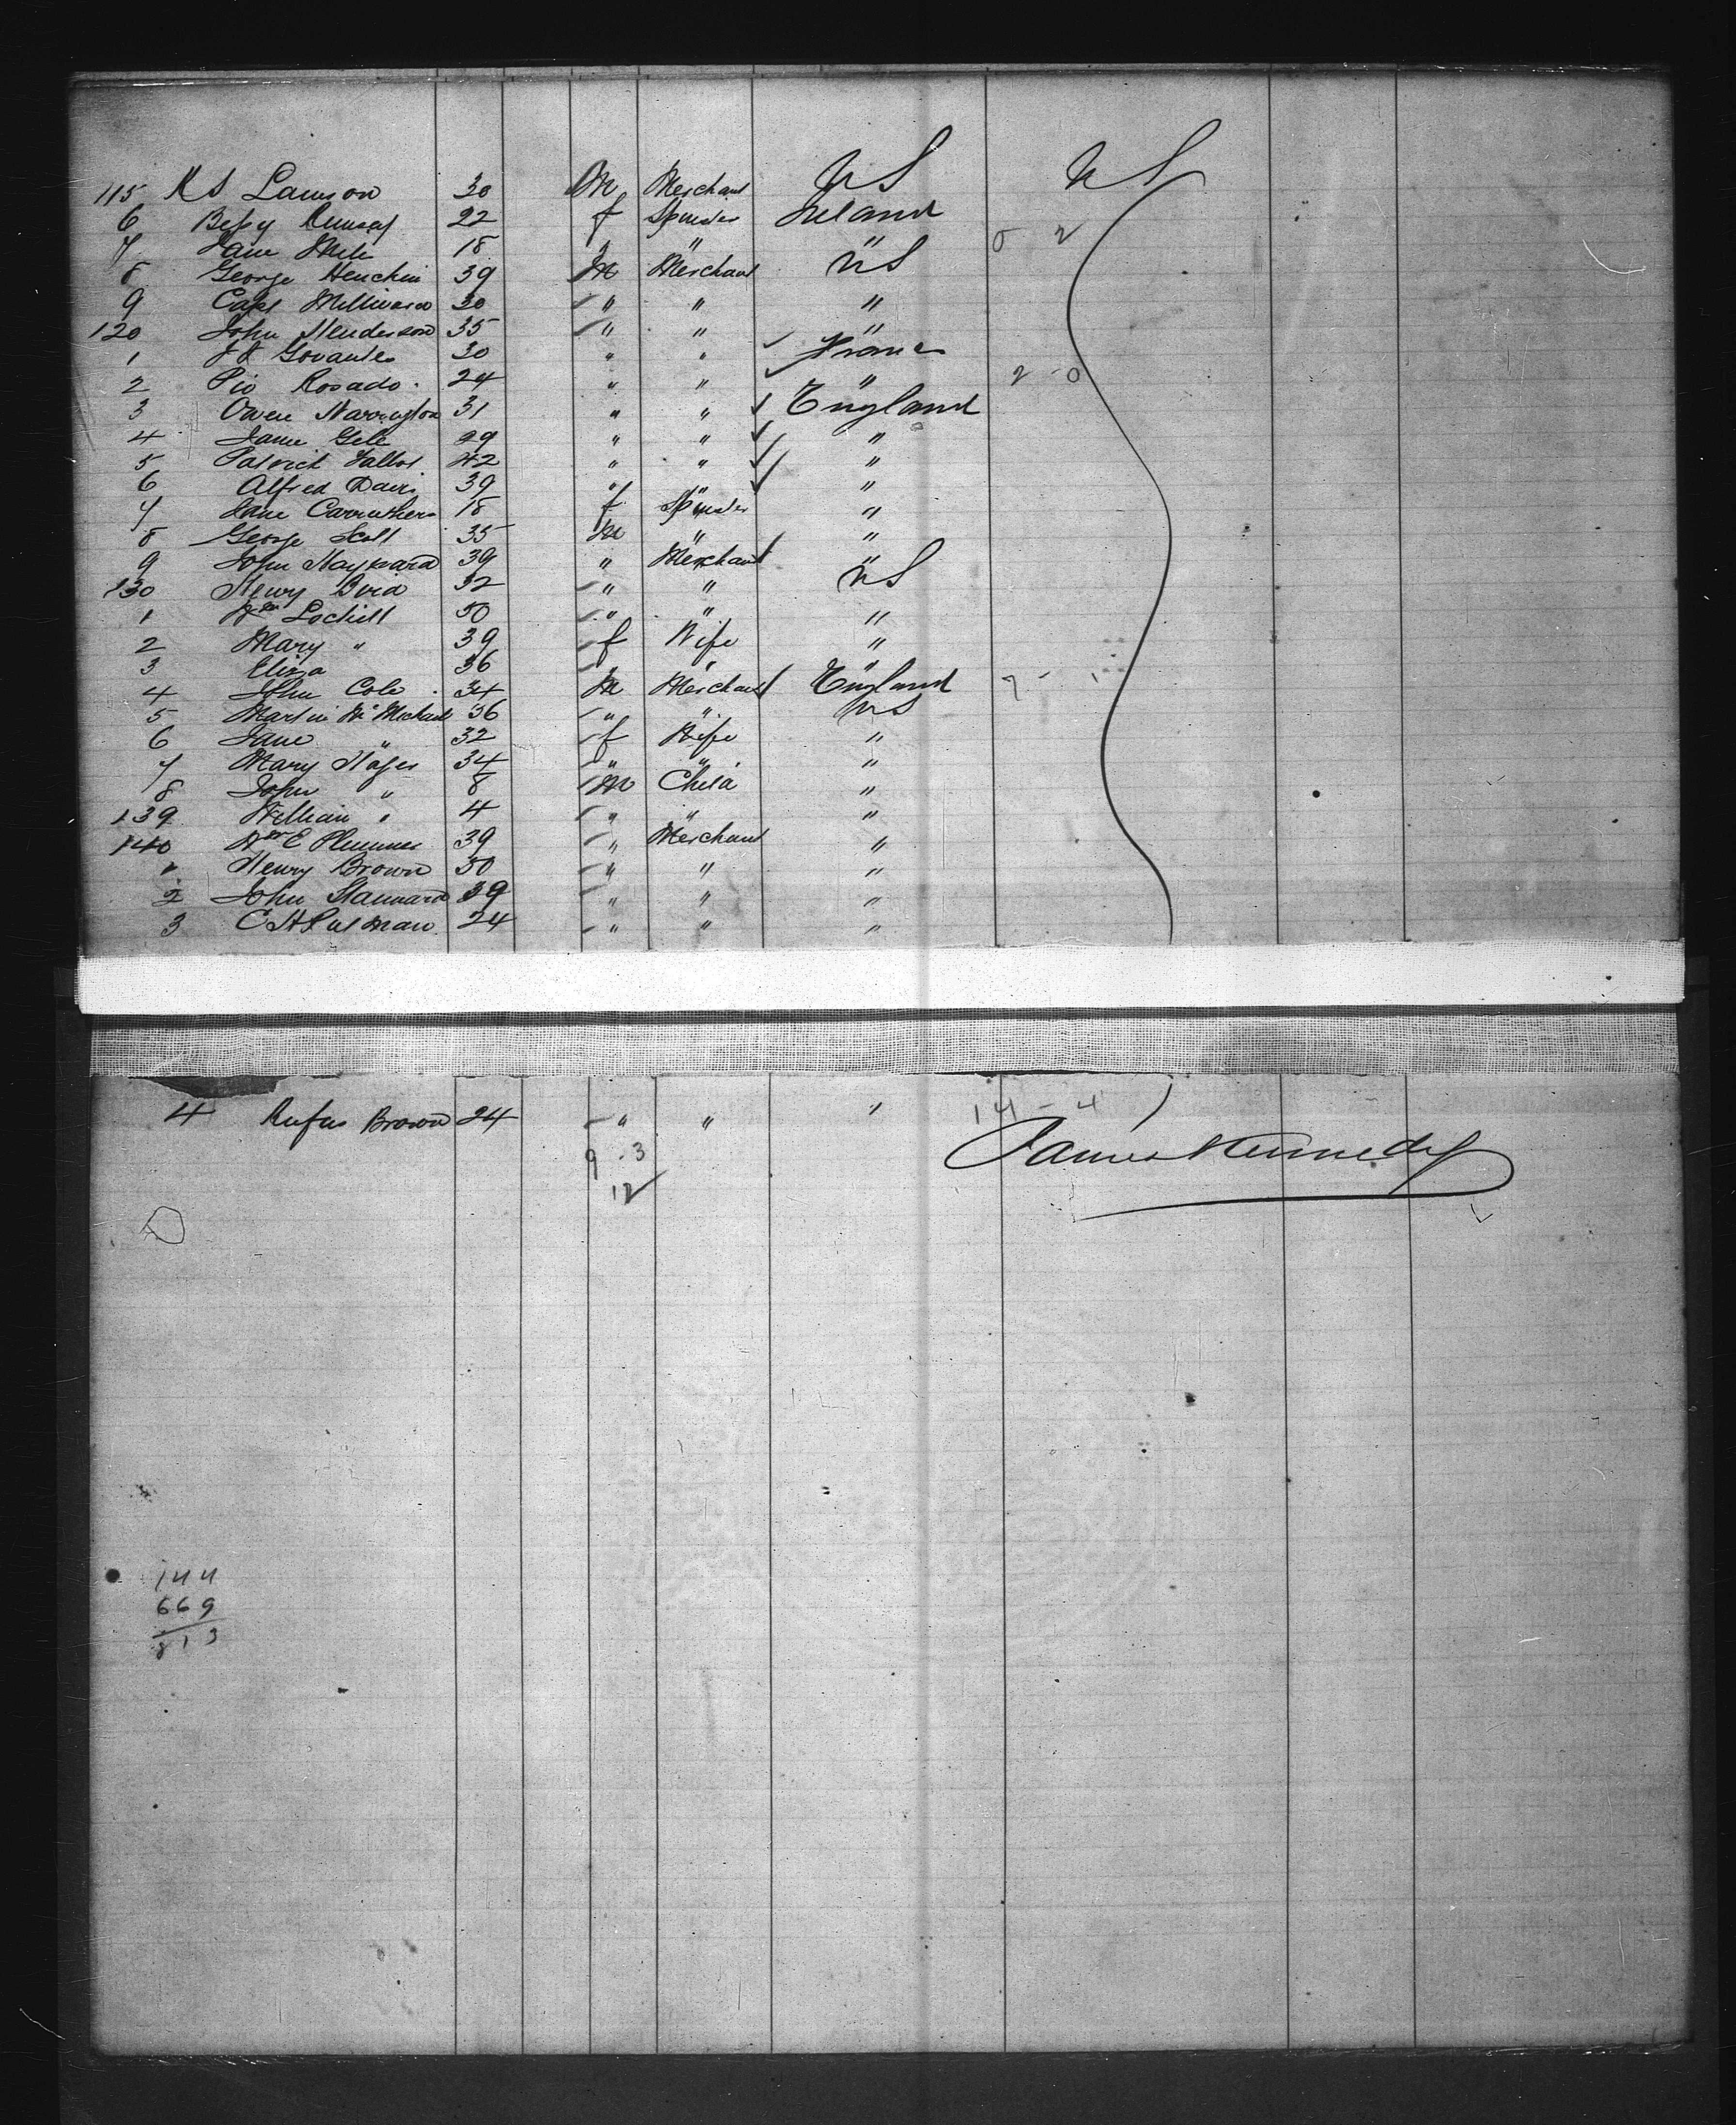 115 R S Lawson 30 M Merchant US US
6 Bessy Rumsay 22 f Spinster Ireland
7 Jane Mile 18 " " " 0 2
8 George Henchin 39 M Merchant US
9 Capt Milliward 30 " " "
120 John Henderson 35 " " "
1 J J Govantes 30 " " France
2 Pio Rosado 24 " " " 2 - 0
3 Owen Harrington 31 " " England
4 Jame Gill 29 " " "
5 Patrick Talbot 42 " " "
6 Alfred Davis 39 " " "
7 Jane Carruthers 18 f Spinster "
8 George Scott 35 M " "
9 John Hayward 39 " Merchant US
130 Henry Bird 32 " " "
1 Wm Lochill 50 " " "
2 Mary " 39 f Wife "
3 Eliza 36 " " "
4 John Cole 34 M Merchant England
5 Martin McMichael 36 " " US
6 Jane " 32 f Wife "
7 Mary Hayes 34 " " "
8 John " 8 M Child "
139 William " 4 " " "
140 Wm E Plummer 39 " Merchant "
1 Henry Brown 50 " " "
2 John Stannard 39 " " "
3 C H Putman 24 " " "
4 Rufus Brown 24 " " " 14 - 4
James Kennedy
9 - 3
12
144
669
813